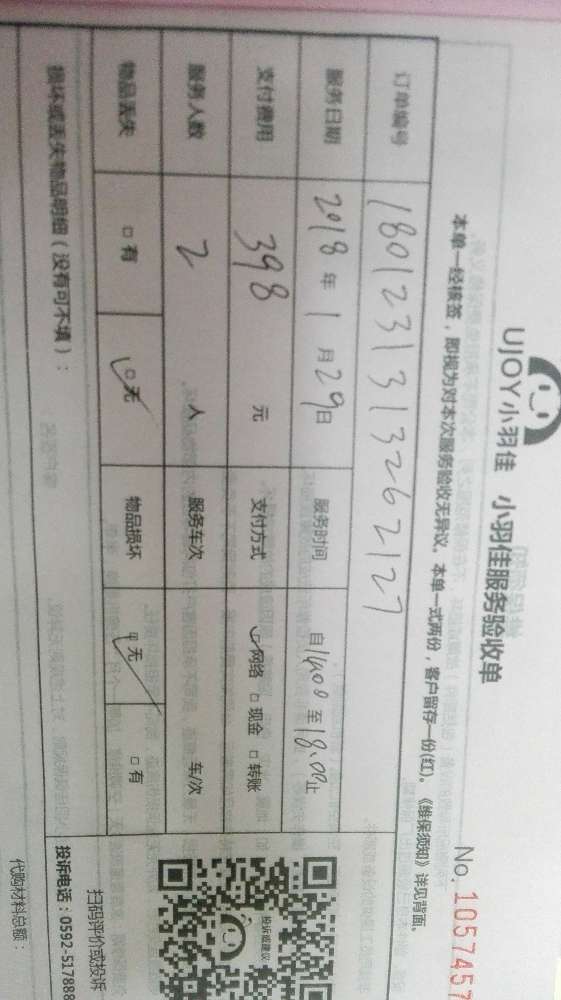 UJOY小羽佳 小羽佳服务验收单
No. 1057457
本单一经核签，即视为对本次服务验收无异议。本单一式两份，客户留存一份(红)。《维保须知》详见背面。
订单编号 18012313132 62127
服务日期 2018 年 1 月 29 日 服务时间 自 14:00 至 18:00 止
支付费用 398 元 支付方式 网络 □ 现金 □ 转账
服务人数 2 人 服务车次 车/次
物品丢失 □ 有 □ 无 物品损坏 □ 无 □ 有
损坏或丢失物品明细（没有可不填）：
投诉或建议
扫码评价或投诉
投诉电话：0592-517888
代购材料总额：